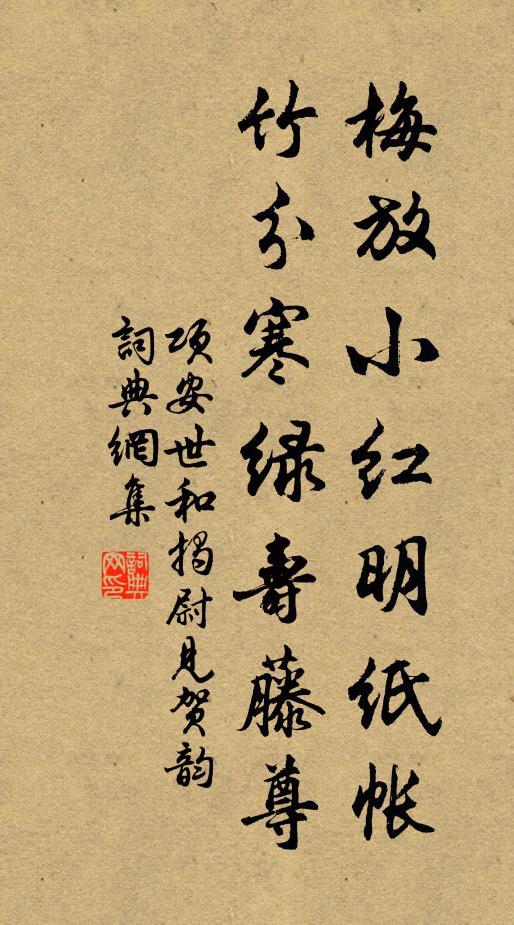 梅放小红明纸帐
竹分寒绿寿藤尊
项安世和揭尉见贺韵
詞典網集
詞典網印